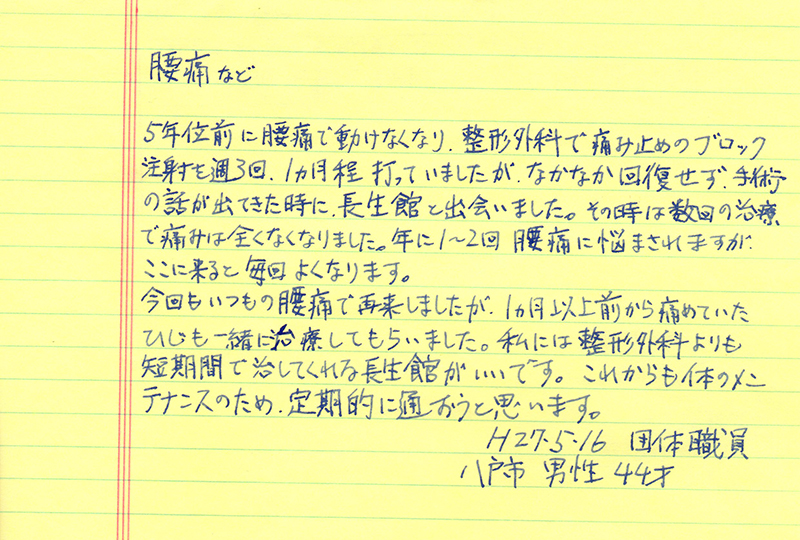 腰痛など
5年位前に腰痛で動けなくなり、整形外科で痛み止めのブロック
注射を週3回、1ヵ月程打っていましたが、なかなか回復せず、手術
の話が出てきた時に、長生館と出会いました。その時は数回の治療
で痛みは全くなくなりました。年に1〜2回 腰痛に悩まされますが、
ここに来ると毎回よくなります。
今回もいつもの腰痛で再来しましたが、1ヵ月以上前から痛めていた
ひじも一緒に治療してもらいました。私には整形外科よりも
短期間で治してくれる長生館がいいです。これからも体のメン
テナンスのため、定期的に通おうと思います。
H27.5.16 団体職員
八戸市 男性 44才